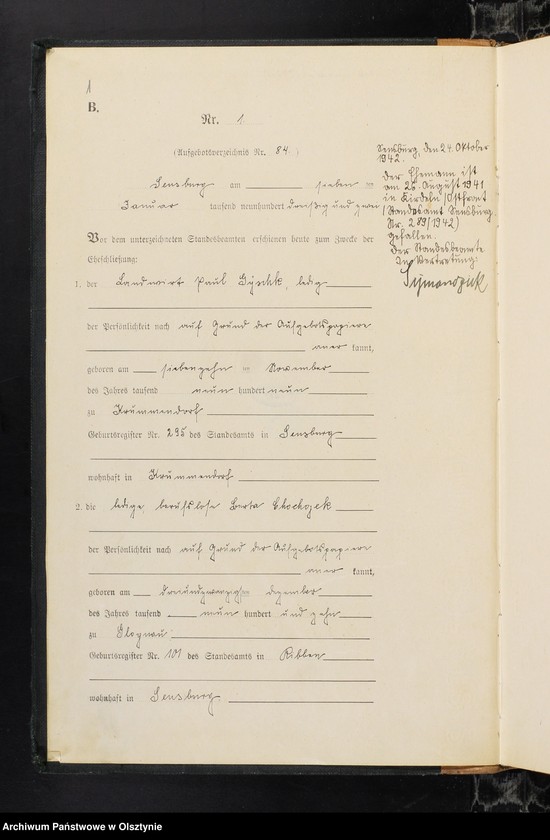 1
B.
Nr. 1
(Aufgebotsverzeichnis Nr. 84.)
Sensburg am sieben ten
Januar tausend neunhundert dreißig und zwei
Vor dem unterzeichneten Standesbeamten erschienen heute zum Zwecke der
Eheschließung:
1. der Landwirt Paul ledig
der Persönlichkeit nach auf Grund der Aufgebotspapiere
aner kannt,
geboren am siebenzehn ten November
des Jahres tausend neun hundert neun
zu Krummendorf
Geburtsregister Nr. 295 des Standesamts in Sensburg
wohnhaft in Krummendorf
2. die ledige, berufslose Berta Chochojek
der Persönlichkeit nach auf Grund der Aufgebotspapiere
aner kannt,
geboren am dreiundzwanzigsten Dezember
des Jahres tausend neun hundert und zehn
zu Glognau
Geburtsregister Nr. 101 des Standesamts in Ribben
wohnhaft in Sensburg
Sensburg, den 24. Oktober
1942.
Der Ehemann ist
am 26. August 1941
in Kirdeln /Ostfront
(Standesamt Sensburg
Nr. 289/1942)
gefallen.
Der Standesbeamte
In Vertretung:
Symanozick
Archiwum Państwowe w Olsztynie